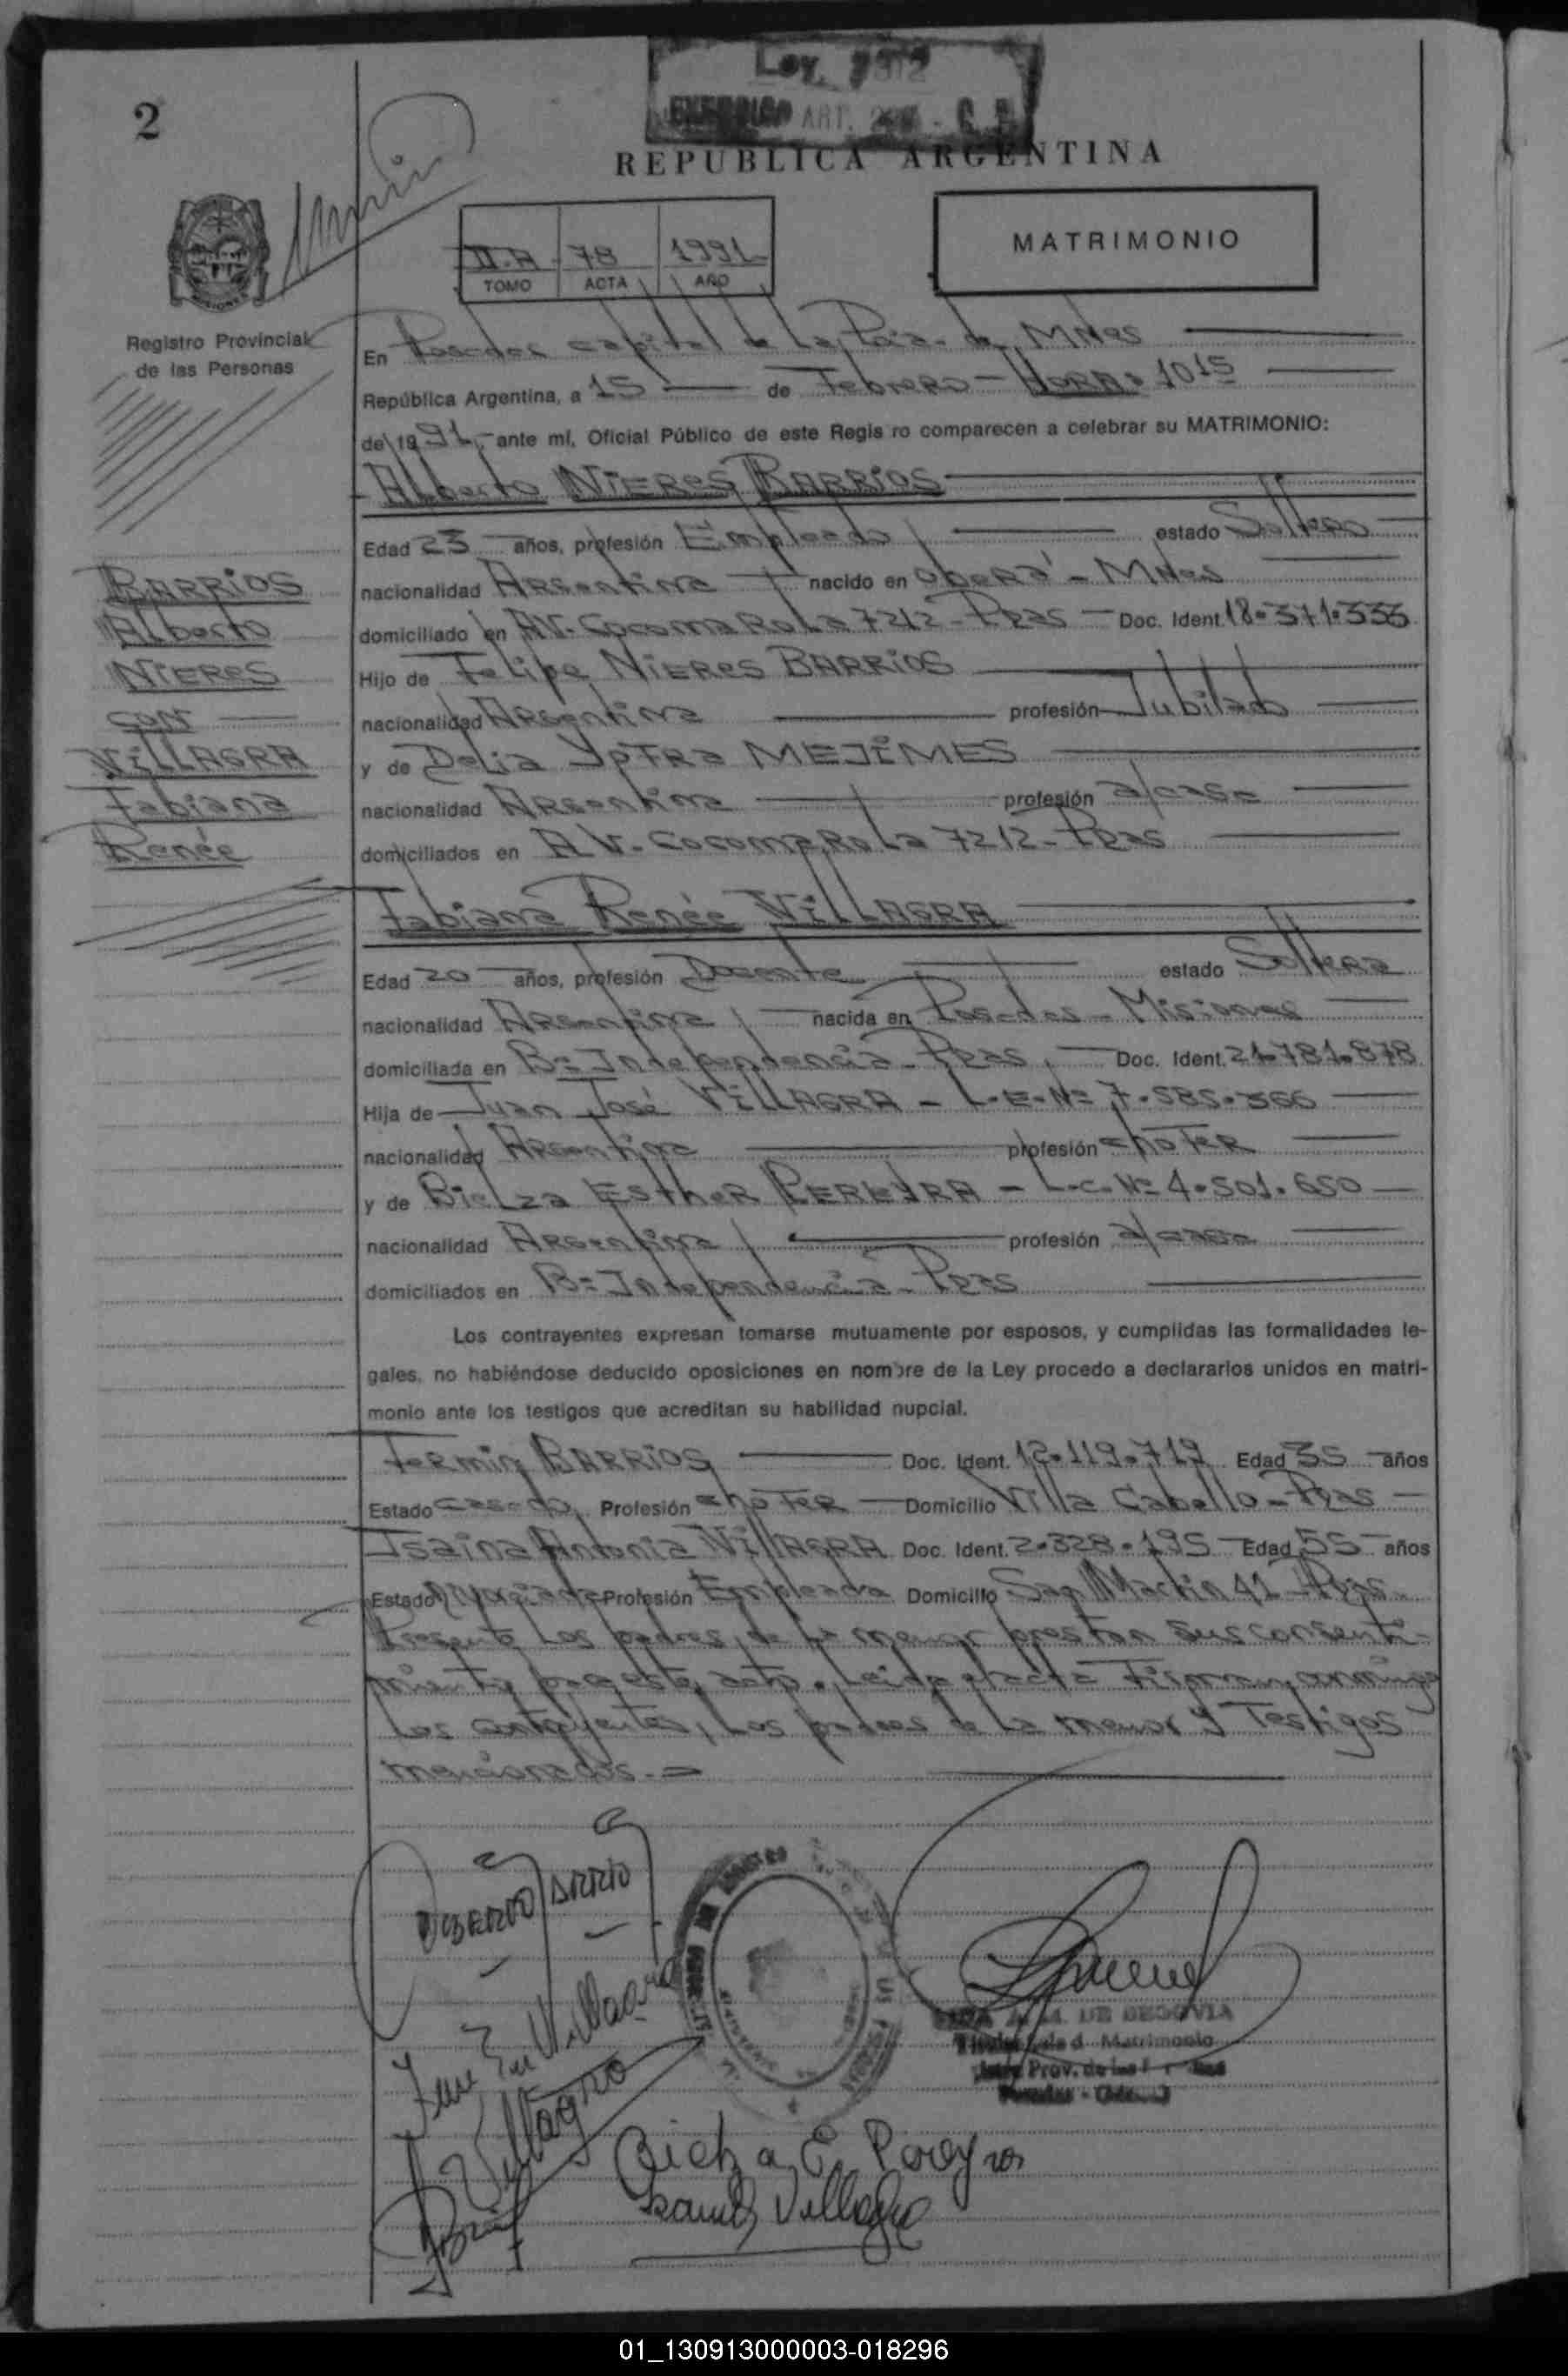 Ley,
ART.
2
REPUBLICA ARGENTINA
II.A 78 1991
TOMO ACTA AÑO
MATRIMONIO
MISIONES
Registro Provincial
de las Personas
En Posadas capital de La Pcia. de MNes
República Argentina, a 15 de Febrero - HORA: 1015
de 1991,- ante mí, Oficial Público de este Regis ro comparecen a celebrar su MATRIMONIO:
Alberto NIERES BARRIOS
Edad 23 años, profesión Empleado estado Soltero
nacionalidad Argentina nacido en Oberá - MNes
domiciliado en AV. Cocomarola 7212 - Pdas - Doc. Ident. 18.371.333
Hijo de Felipe NIERES BARRIOS
nacionalidad Argentina profesión Jubilado
y de Delia MEJIMES
nacionalidad Argentina profesión a/casa
domiciliados en AV. Cocomarola 7212 - Pdas
BARRIOS
Alberto
NIERES
CON
VILLAGRA
Fabiana
Renée
Fabiana Renée VILLAGRA
Edad 20 años, profesión Docente estado Soltera
nacionalidad Argentina nacida en Posadas - Misiones
domiciliada en Bº Independencia - Pdas, Doc. Ident. 21.781.878
Hija de Juan José VILLAGRA - L.E. Nº 7.585.366
nacionalidad Argentina profesión choFER
y de Bielza Esther PEREYRA - L.C. Nº 4.501.650
nacionalidad Argentina profesión a/casa
domiciliados en Bº Independencia - Pdas
Los contrayentes expresan tomarse mutuamente por esposos, y cumplidas las formalidades le-
gales, no habiéndose deducido oposiciones en nombre de la Ley procedo a declararlos unidos en matri-
monio ante los testigos que acreditan su habilidad nupcial.
Fermin BARRIOS Doc. Ident. 12.119.719 Edad 35 años
Estado casado, Profesión choFER Domicilio Villa Cabello - Pdas -
Isaina Antonia VILLAGRA Doc. Ident. 2.328.195 Edad 55 años
Estado Divorciada Profesión Empleada Domicilio San Martin 41 - Pdas.
Presente Los padres de la menor prestan sus consenti-
miento para este acto. Leida el acta Firman conmigo
Los contrayentes, Los padres de la menor y Testigos
mencionados.-
Villagra
Villagra
Bielza E. Pereyra
Villagra
DE SEGOVIA
Matrimonio
Prov. de las
01_130913000003-018296